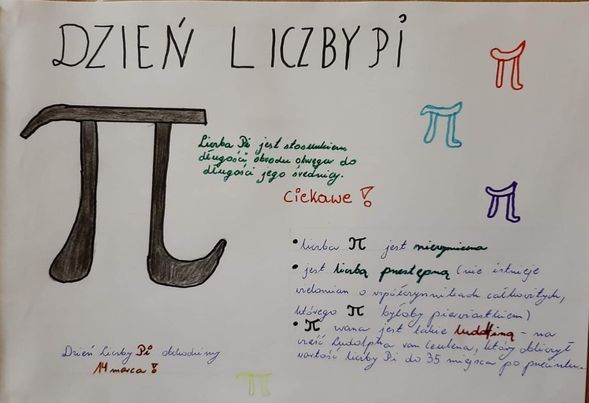 DZIEŃ LICZBY Pi
π
π
π
π
Liczba Pi jest stosunkiem
długości obwodu okręgu do
długości jego średnicy.
Ciekawe!
• liczba π jest niewymierna
• jest liczbą przestępną (nie istnieje
wielomian o współczynnikach całkowitych,
którego π byłoby pierwiastkiem)
• π zwana jest także ludolfiną - na
cześć Ludolpha van Ceulena, który obliczył
wartość liczby Pi do 35 miejsca po przecinku.
Dzień Liczby Pi obchodzimy
14 marca!
π